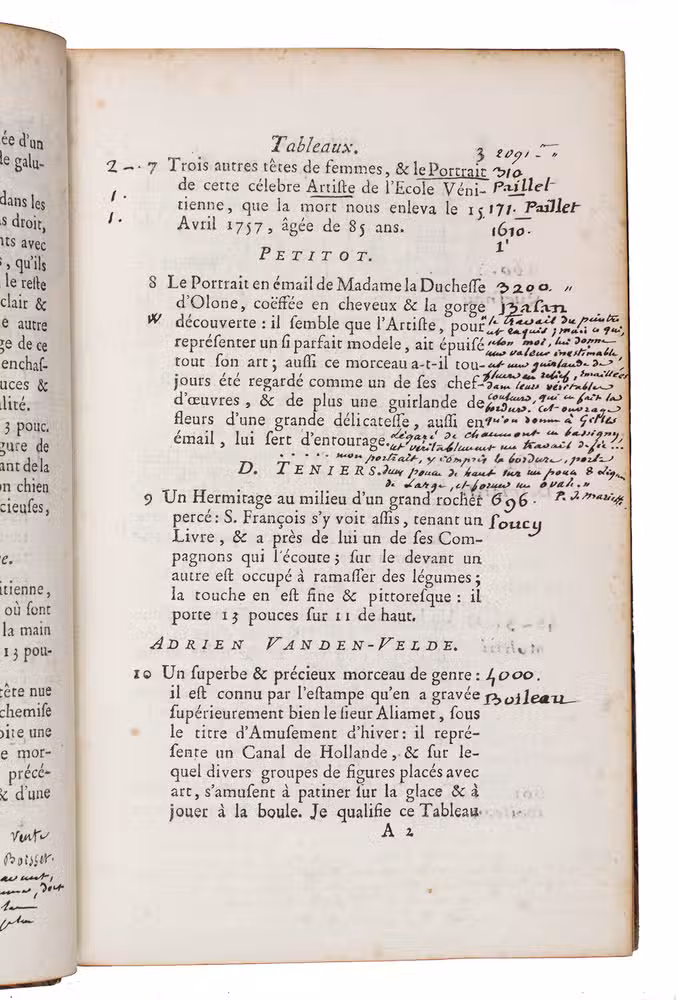 ée d'un
le galu-
dans les
s droit,
ts avec
s, qu'ils
le reste
clair &
e autre
ge de ce
enchaſ-
uces &
alité.
3 pouc.
gure de
ant de la
on chien
cieuſes,
e.
itienne,
où ſont
la main
13 pou-
tête nue
chemiſe
oite une
e mor-
précé-
& d'une
vente
Boisset.
Tableaux. 3 2091 - "
2 - . 7 Trois autres têtes de femmes, & le Portrait 310
1. de cette célebre Artiſte de l'Ecole Véni- Paillet
1. tienne, que la mort nous enleva le 15 171. Paillet
Avril 1757, âgée de 85 ans. 1610.
1
PETITOT.
8 Le Portrait en émail de Madame la Ducheſſe 3200. "
d'Olone, coëffée en cheveux & la gorge Basan
W découverte : il ſemble que l'Artiſte, pour "le travail du peintre
repréſenter un ſi parfait modele, ait épuiſé est exquis; mais ce qui,
tout ſon art; auſſi ce morceau a-t-il tou- selon moi, lui donne
jours été regardé comme un de ſes chef- une valeur inestimable,
d'œuvres, & de plus une guirlande de est une guirlande de
fleurs d'une grande délicateſſe, auſſi en fleurs en relief, émaillées
émail, lui ſert d'entourage. dans leurs véritable
couleurs, qui en fait la
bordure. cet ouvrage
qu'on donne à Gilles
Légaré de chaumont en bassigny,
est véritablement un travail de fée...
..... mon portrait, y compris la bordure, porte
D. TENIERS. deux pouce de haut sur un pouce 8 Lignes
de Large, et forme un ovale." P. J. Mariette
9 Un Hermitage au milieu d'un grand rocher 696.
percé : S. François s'y voit aſſis, tenant un Soucy
Livre, & a près de lui un de ſes Com-
pagnons qui l'écoute; ſur le devant un
autre eſt occupé à ramaſſer des légumes;
la touche en eſt fine & pittoreſque : il
porte 13 pouces ſur 11 de haut.
ADRIEN VANDEN-VELDE.
10 Un ſuperbe & précieux morceau de genre : 4000.
il eſt connu par l'eſtampe qu'en a gravée Boileau
ſupérieurement bien le ſieur Aliamet, ſous
le titre d'Amuſement d'hiver : il repré-
ſente un Canal de Hollande, & ſur le-
quel divers groupes de figures placés avec
art, s'amuſent à patiner ſur la glace & à
jouer à la boule. Je qualifie ce Tableau
A 2